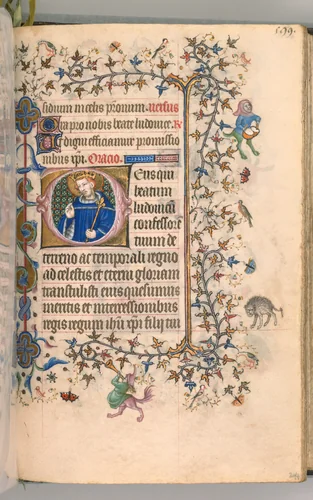 599.
sidium in celis pronum. Versus
Ora pro nobis beate ludovice. R
Ut digni efficiamur promissio
nibus xpi. Oracio.
Deus qui
beatum
ludovicum
confessorē
tuum de
terreno ac temporali regno
ad celestis et eterni gloriam
transtulisti eius quesumus
meritis et intercessionibus
regis regum ihū xpi filii tui